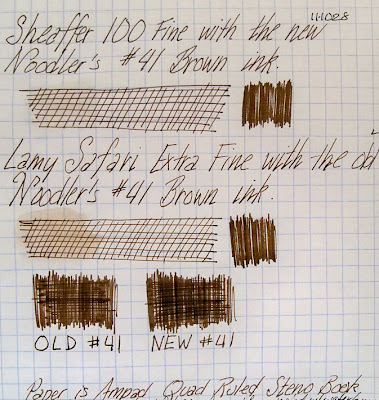 111028
Sheaffer 100 Fine with the new
Noodler's #41 Brown ink.
Lamy Safari Extra Fine with the old
Noodler's #41 Brown ink.
OLD #41 NEW #41
Paper is Ampad Quad Ruled Steno Book